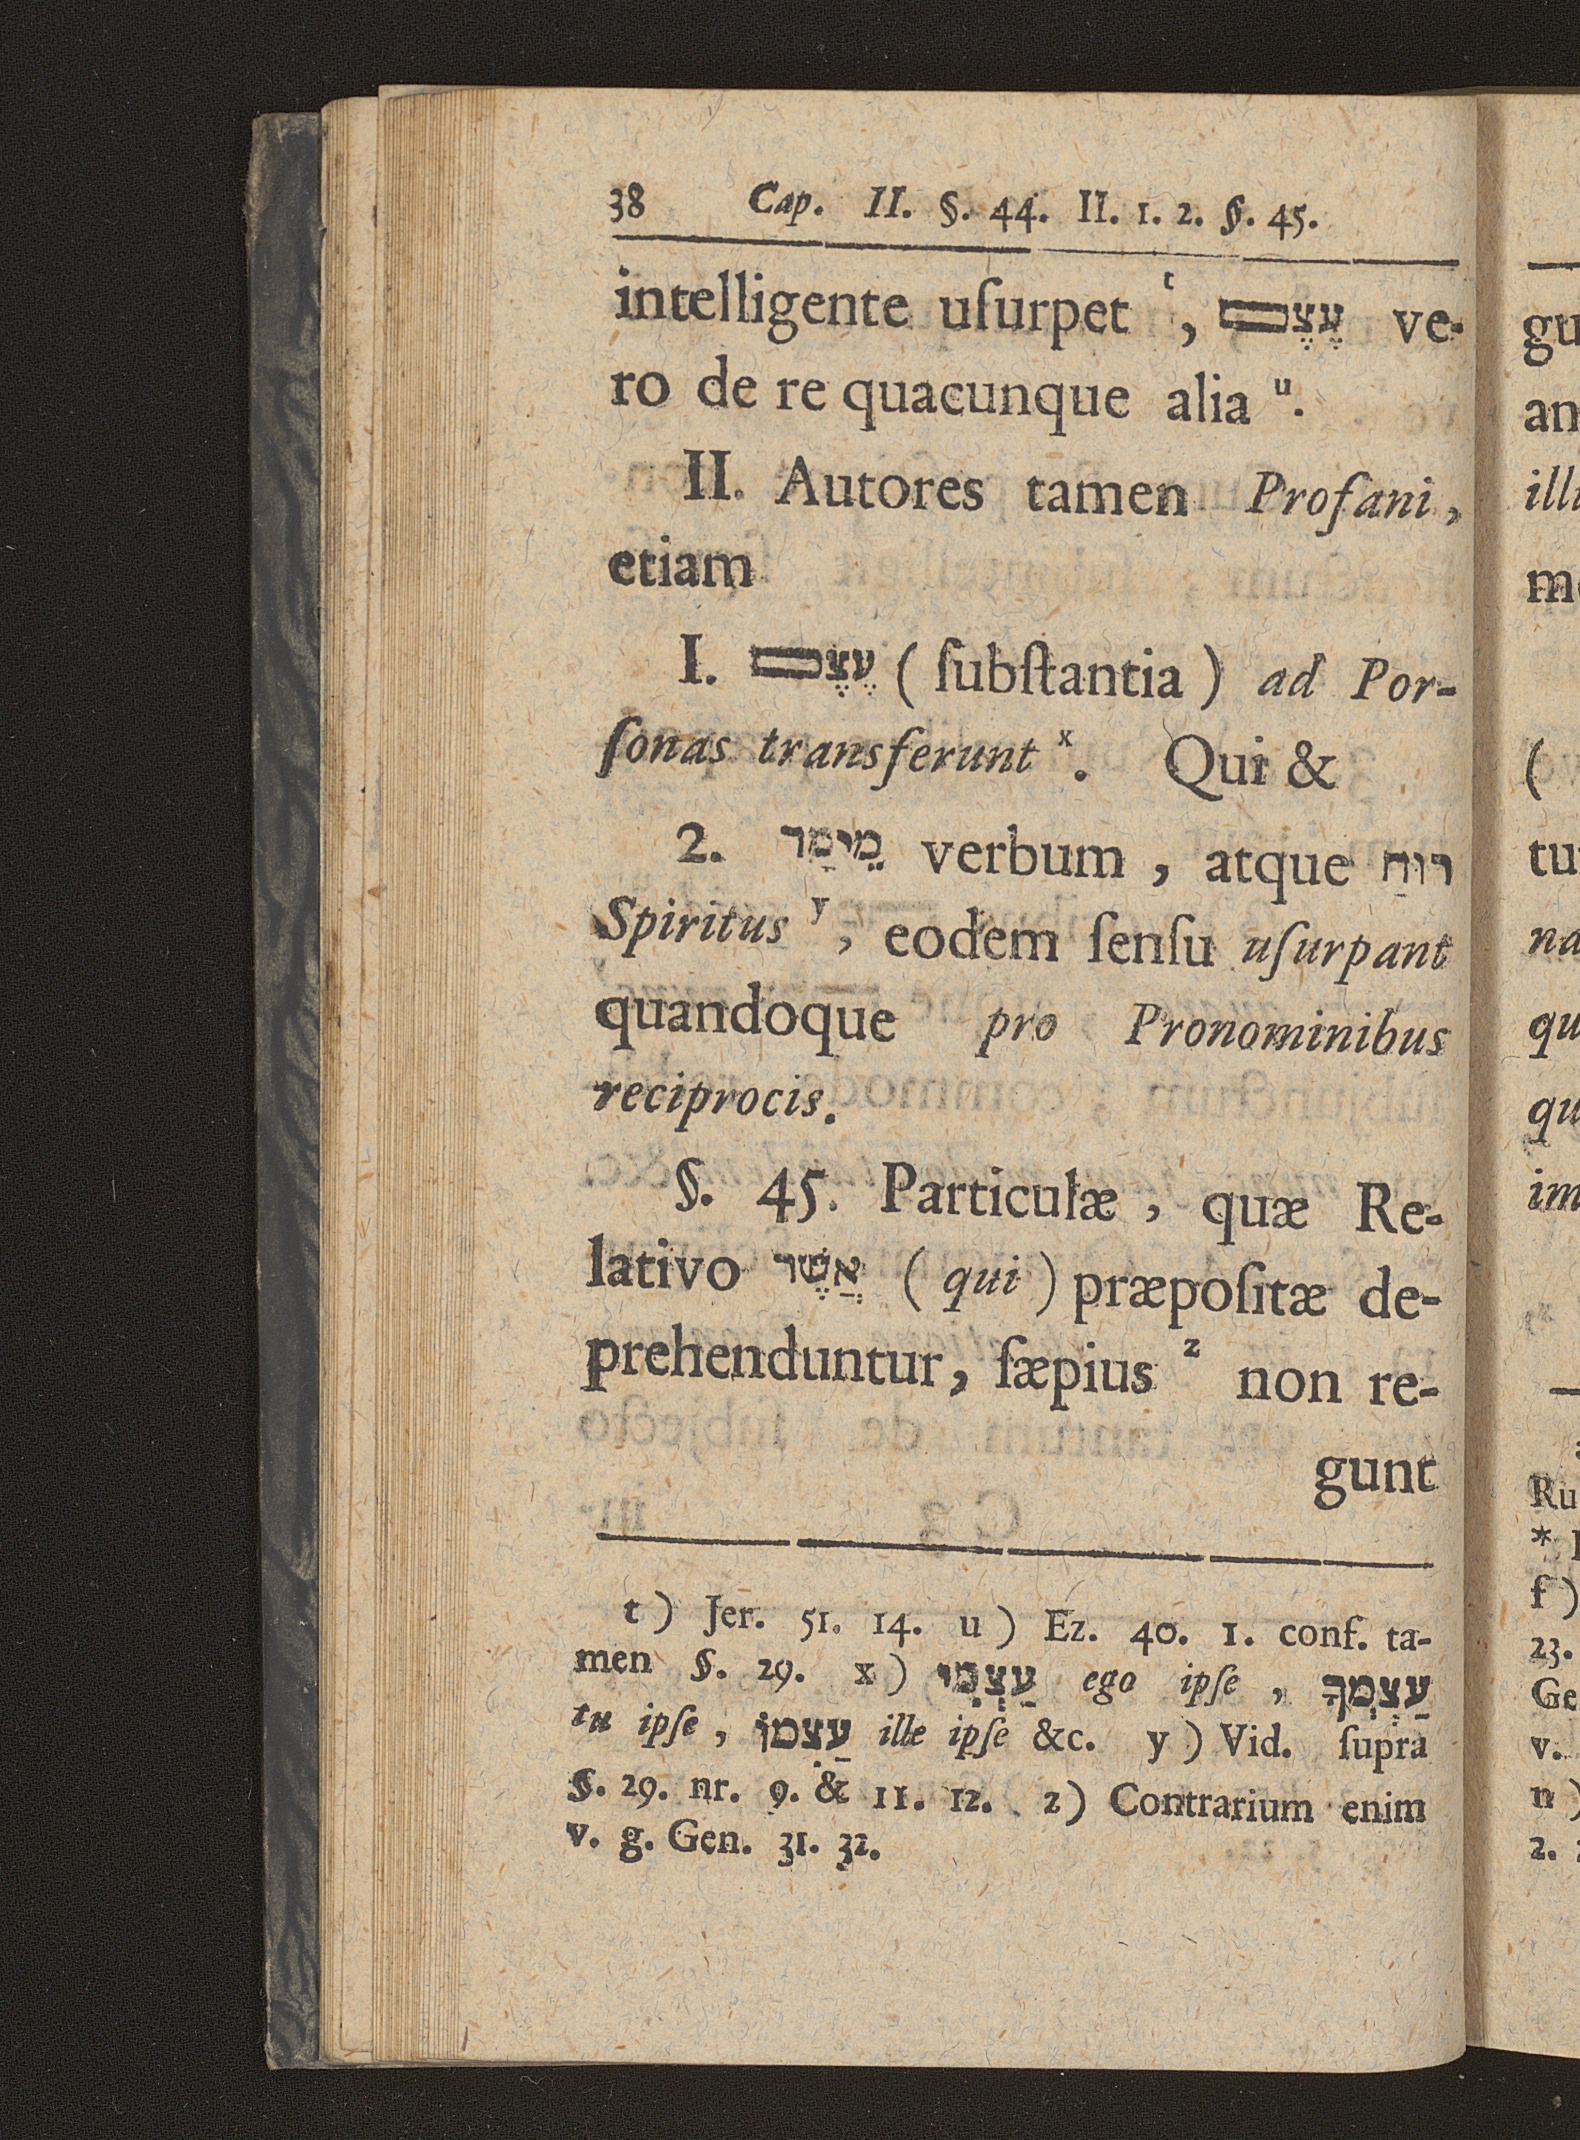 38 Cap. II. §. 44. II. 1. 2. §. 45.
intelligente uſurpet t, עֶצֶם ve-
ro de re quacunque alia u.
II. Autores tamen Profani,
etiam
I. עֶצֶם ( ſubſtantia ) ad Por-
ſonas transferunt x. Qui &
2. מֵימַר verbum, atque רוּחַ
Spiritus y, eodem ſenſu uſurpant
quandoque pro Pronominibus
reciprocis.
§. 45. Particulæ, quæ Re-
lativo אֲשֶׁר ( qui ) præpoſitæ de-
prehenduntur, ſæpius z non re-
gunt
t ) Jer. 51. 14. u ) Ez. 40. 1. conf. ta-
men §. 29. x ) עַצְמִי ego ipſe, עַצְמְךָ
tu ipſe, עַצְמוֹ ille ipſe &c. y ) Vid. ſupra
§. 29. nr. 9. & 11. 12. z ) Contrarium enim
v. g. Gen. 31. 32.
gu
an
illi
me
(
tu
na
qu
qu
im
Ru
*
f )
23.
Ge
v.
n )
2.